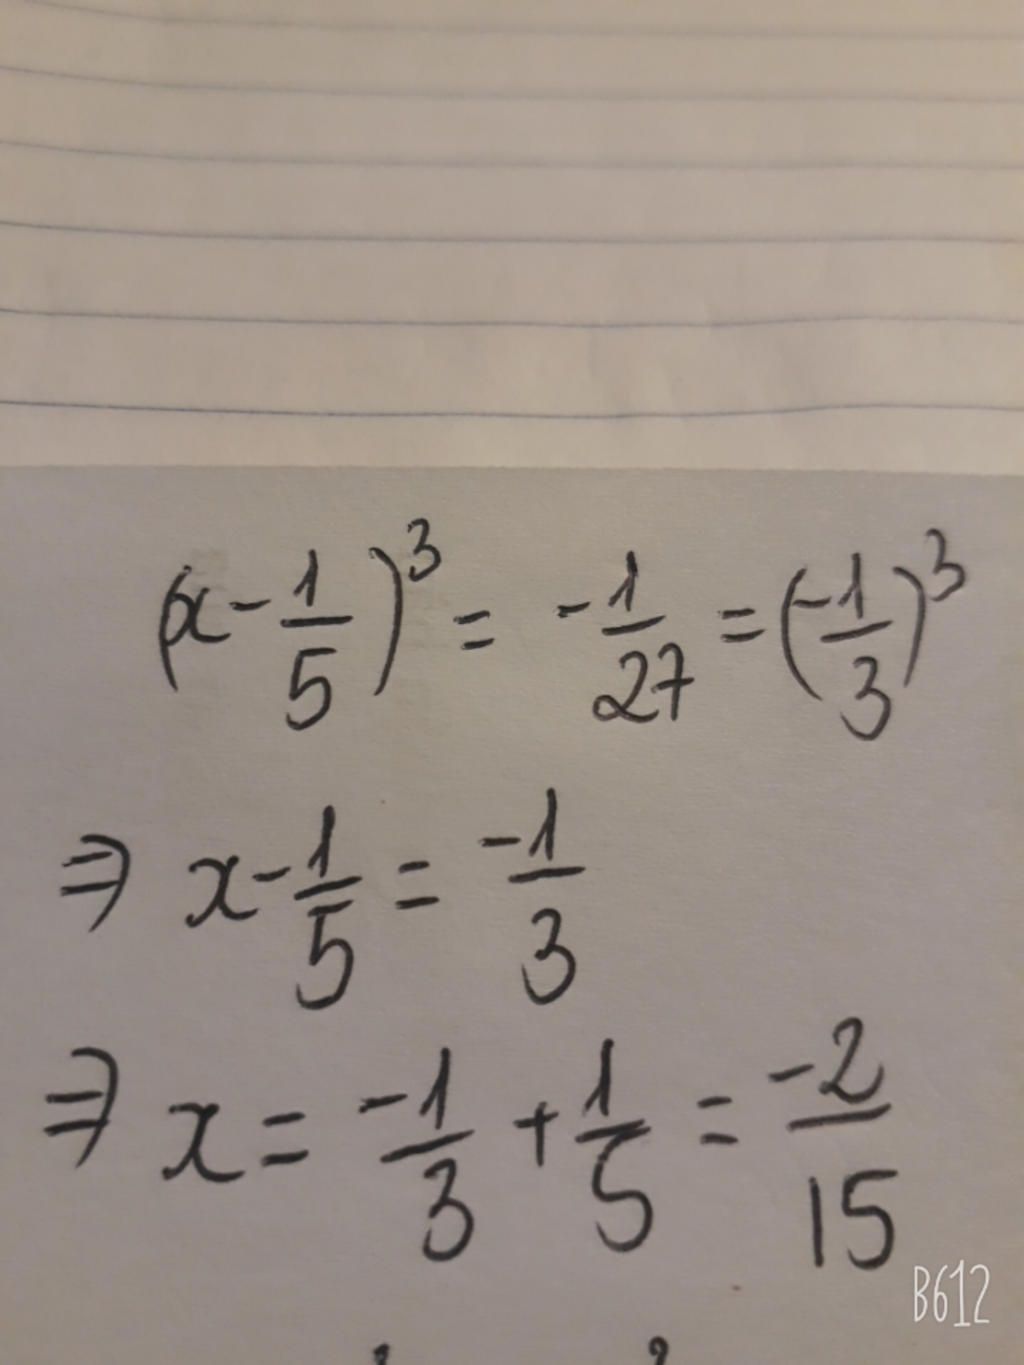 (x - 1/5)³ = -1/27 = (-1/3)³
⇒ x - 1/5 = -1/3
⇒ x = -1/3 + 1/5 = -2/15
B612